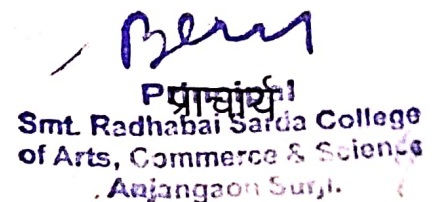 प्राचार्य
Principal
Smt. Radhabai Sarda College
of Arts, Commerce & Science
Anjangaon Surji.